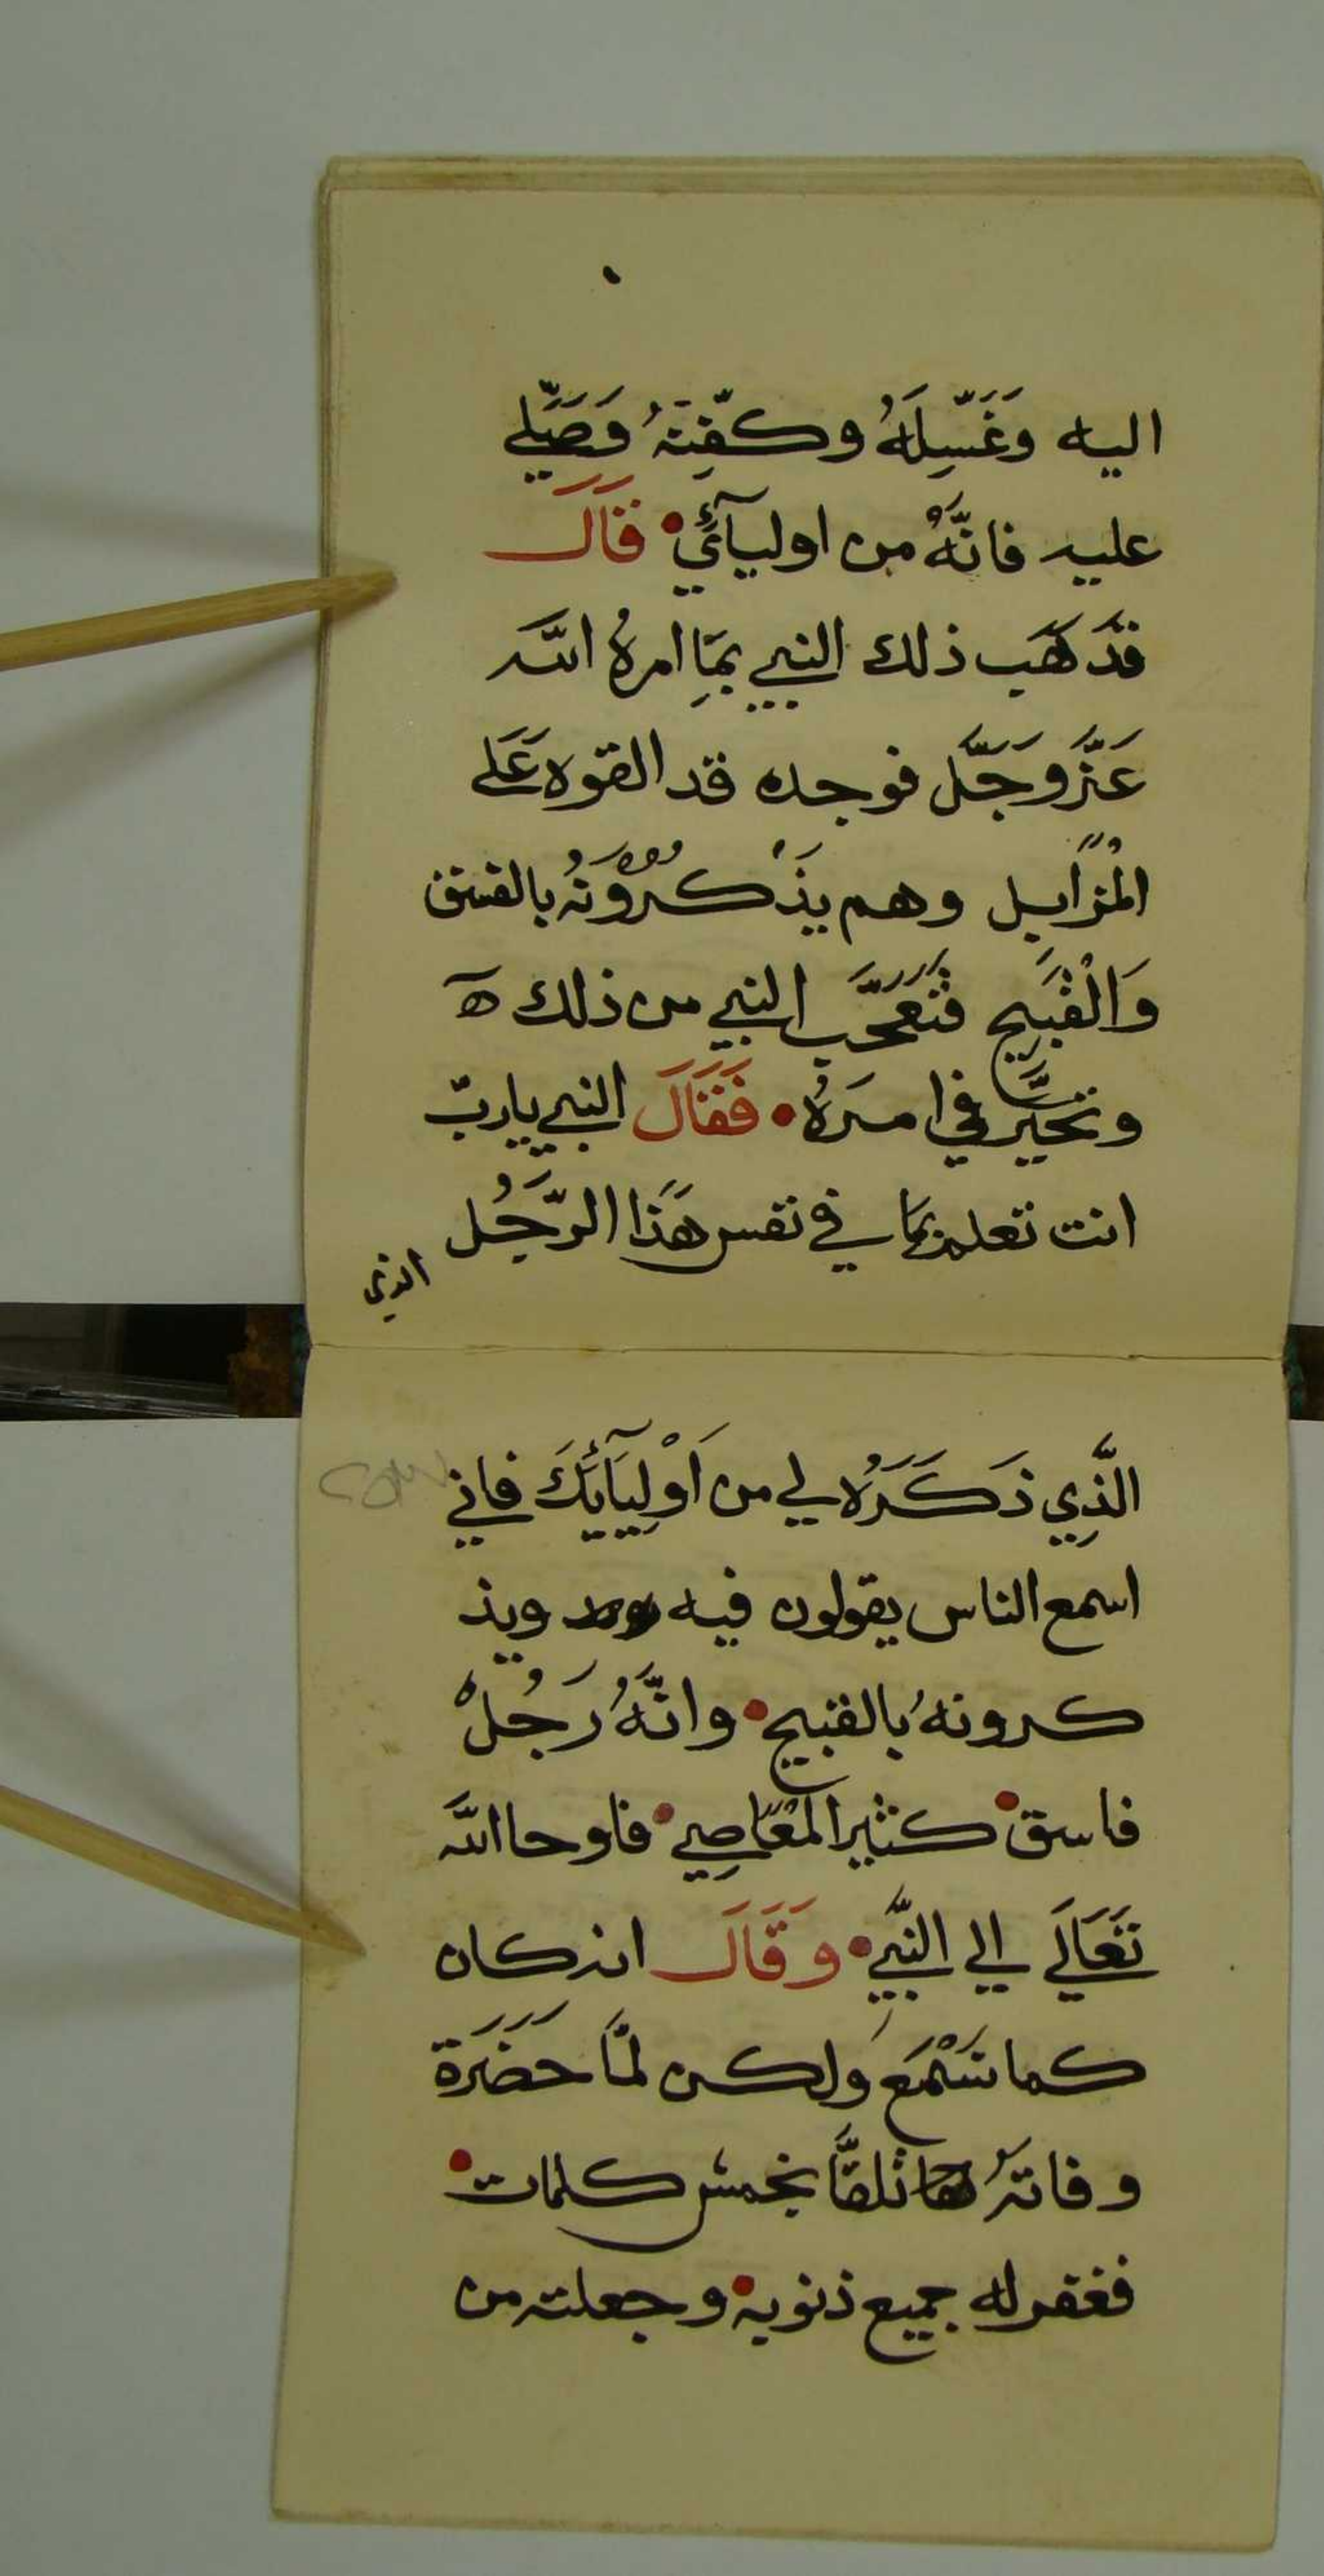 اليه وَغَسِّلَهُ وكفِّنَهُ وَصَلِّي
عليه فانَّهُ من اوليآئي • قَالَ
فذَهَب ذلك النبي بمَا امرهُ الله
عَزَّوَجَّل فوجده قد القوه عَلى
المْزَابِل وهم يذْكُرُونَهُ بالفسق
وَالْقَبِيح فَتَعَجَّبَ النبي من ذلك ه
وتحيَّر في امرهُ • فَقَالَ النبي يارب
انت تعلم بما في نفس هَذَا الرَّجُل
الذي
الَّذِي ذَكَرَهُ لي من اَوْلِيَآئِكَ فاني
اسمع الناس يقولون فيه ويذ
كرونهُ بالقبيح • وانَّهُ رَجُلْ
فاسق • كثير المعَاصِي • فاوحا الله
تَعَالَي الي النَّبِي • وَقَالَ انه كان
كما تَسْمَع ولكن لمَّا حَضَرَة
وفاتهُ تلقَّا بخمس كلمات •
فغفر له جميع ذنوبه • وجعلته من